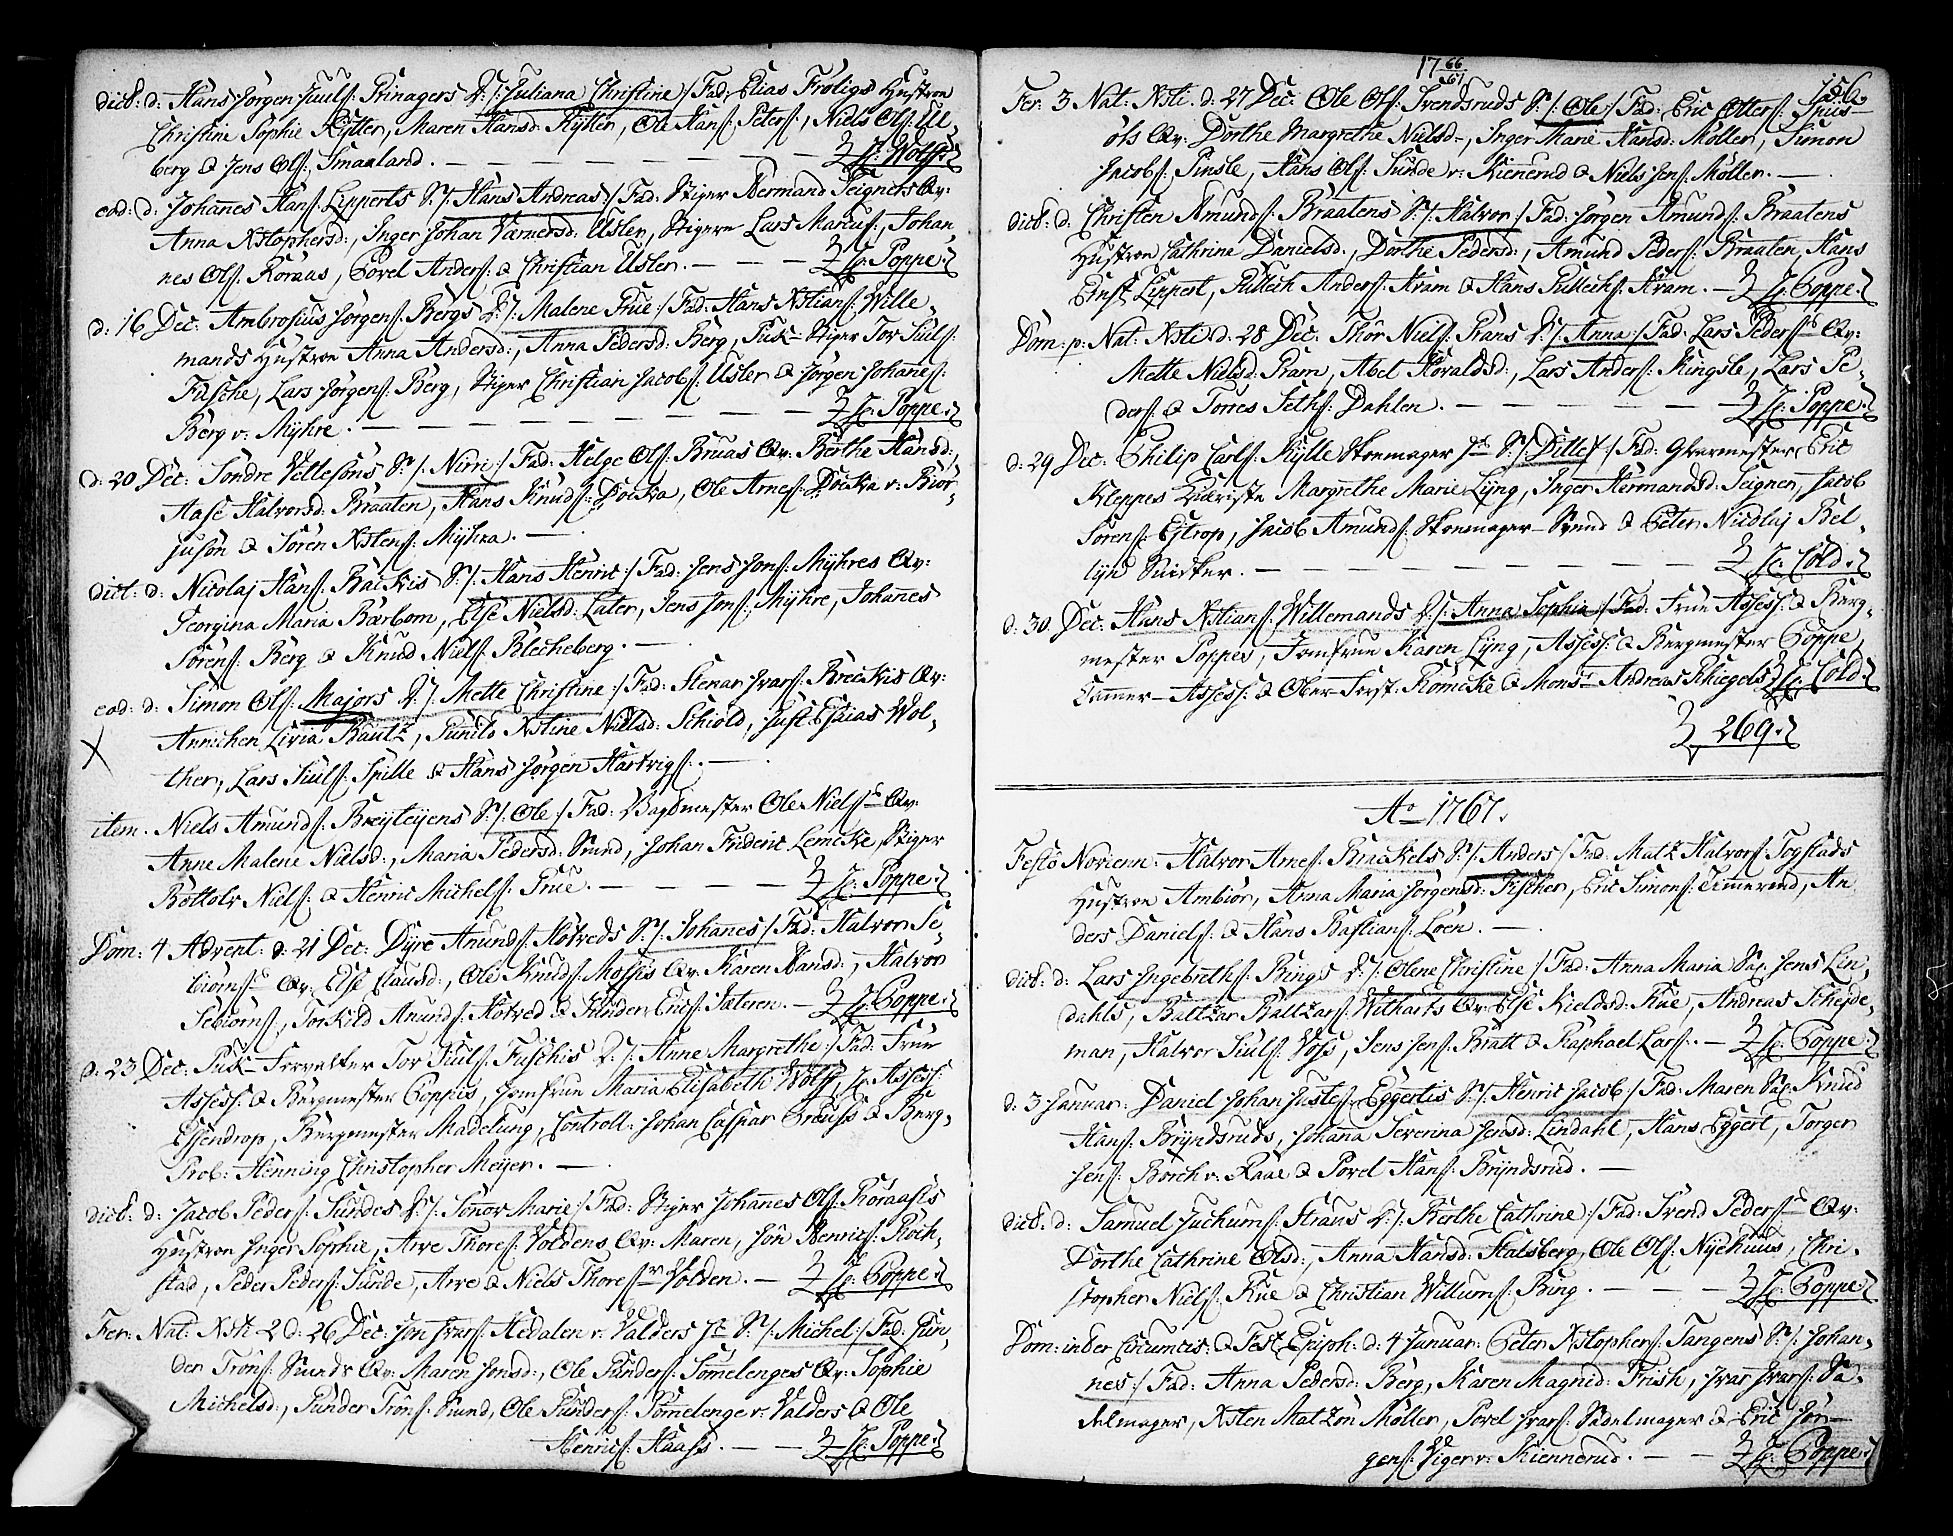 dict: d: Hans Jörgen Juuls: Prinagers D:/: Juliana Christine :/ Fad: Elias Fröligs Hustroe
Christine Sophie Rÿtter, Maren Hansd: Rÿtter, Ole Hans: Peters:, Niels Ols: Ul-
berg & Jens Ols: Smaaland. — H: Wolff.
eod: d: Johañes Hans: Lipperts S:/: Hans Andreas :/ Fad: Stiger Herman Seigners Qv:
Anna Xstophersd:, Inger Johan Varnersd: Usler, Stiger Lars Marcus:, Johan
nes Ols: Roraas, Povel Anders: & Christian Usler. — H: Poppe.
d: 16 Dec: Ambrosius Jörgens: Bergs D:/: Malene Prue :/ Fad: Hans Xstians: Wille-
mands Hustroe Anna Andersd:, Anna Pedersd: Berg, Stiger Tor Juuls:
Fusche, Lars Jörgens: Berg, Stiger Christian Jacobs: Usler & Jörgen Johanes:
Berg v: Mÿhre. — H: Poppe.
d: 20 Dec: Söndre Vettesöns S:/: Nirri :/ Fad: Helge Ols: Bruas Qv: Berthe Hansd:,
Aase Halvorsd: Braaten, Hans Knuds: Docka, Ole Arnes: Docka v: Biör-
jusön & Sören Xstens: Mÿhra. —
dict: d: Nicolaj Hans: Backis S:/: Hans Henric :/ Fad: Jens Jons: Mÿhres Qv:
Georgina Maria Barbom, Else Nielsd: Later, Jens Jons: Mÿhre, Johanes
Sörens: Berg & Knud Niels: Blecheberg. —
eod: d: Simon Ols: Majors D:/: Mette Christine :/ Fad: Stenar Ivars: Breckis Qv:
Annichen Livia Bautz, Gunild Xstine Nielsd: Schiold, Just Esaias Wol-
ther, Lars Juuls: Spille & Hans Jörgen Hartvigs: —
item. Niels Amunds: Breÿteÿens S:/: Ole :/ Fad: Bagemester Ole Niels: Qv:
Anne Malene Nielsd:, Maria Pedersd: Sund, Johan Frideric Lemcke, Stiger
Bottolv Niels: & Henric Michels: Prue. — H: Poppe.
Dom: 4 Advent: d: 21 Dec: Dÿre Anunds: Hotveds S:/: Johañes :/ Fad: Halvor Se-
biörns: Qv: Else Clausd:, Ole Knuds: Mossis Qv: Karen Hansd:, Halvor
Sebiörns:, Torkild Anunds: Hotved & Gunder Erics: Sateren. — H: Poppe.
d: 23 Dec: Forvalter Tor Juuls: Fuschis D:/: Anne Margrethe :/ Fad: Frue
Assess: & Bergmester Poppis, Jomfrue Maria Elisabeth Wolff, H: Assess:
Essendrop, Bergmester Madelung, Controll: Johan Caspar Prduss & Berg-
Prob: Henning Christopher Meÿer. —
dict: d: Jacob Peders: Sundes D:/: Sönov Marie :/ Fad: Stiger Johañes Ols: Roraasis
Hustroe Inger Sophie, Arve Thores: Voldens Qv: Maren, Jön Henrics: Röch-
stad, Peder Peders: Sunde, Arve & Niels Thores: Volden. — H: Poppe.
Fer: Nat: Xsti 2 d: 26 Dec: Jon Ivars: Hedalen v: Valders S:/: Michel :/ Fad: Gun-
der Tröns: Sunds Qv: Maren Jonsd:, Ole Gunders: Tömelenges Qv: Sophie
Michelsd:, Gunder Tröns: Sund, Ole Gunders: Tömelenge v: Valders & Ole
Henrics: Haass. — H: Poppe.
17 66/67 156.
Fer: 3 Nat: Xsti: d: 27 Dec: Ole Ols: Svendsruds S:/: Ole :/ Fad: Eric Otters: Spus-
öls Qv: Dorthe Margrethe Nielsd:, Inger Marie Hansd: Möller, Simon
Jacobs: Tinsle, Hans Ols: Sunde v: Kienerud & Niels Jens: Möller. —
dict: d: Christen Amunds: Braatens S:/: Halvor :/ Fad: Jörgen Amunds: Braatens
Hustroe Cathrine Danielsd:, Dorthe Pedersd:, Amund Peders: Braaten, Hans
Ernst Lippert, Pullich Anders: Kram & Hans Pullichs: Kram. — H: Poppe.
Dom: p: Nat: Xsti d: 28 Dec: Thör Niels: Prans D:/: Anna :/ Fad: Lars Peders: Qv:
Mette Nielsd: Ram, Abel Haraldsd:, Lars Anders: Ringsle, Lars Pe-
ders: & Torres Seths: Dahlen. — H: Poppe.
d: 29 Dec: Philip Carls: Hÿlle Skomager S:/: Ditlef :/ Fad: Glarmester Eric
Kleppes Margrethe Marie Lÿng, Inger Hermandsd: Seigner, Jacob
Sörens: Estrop, Jacob Amunds: Skomager Svend & Peter Nicolaj Bel-
lÿn Snidker. — H: Cold.
d: 30 Dec: Hans Xstians: Willemands D:/: Anna Sophia :/ Fad: Frue Assess: & Berg-
mester Poppes, Jomfrue Karen Lÿng, Assess: & Bergmester Poppe,
Cammer-Assess: & Ober-Forst: Römcke & Mons: Andreas Kliegels. H: Cold.
269.
Ao 1767.
Festo Novienn: Halvor Arnes: Bruckels S:/: Anders :/ Fad: Matz Halvors: Togstads
Hustroe Ambiör, Anna Maria Jörgensd: Fischer, Eric Simons: Timerend, An
ders Daniels: & Hans Bastians: Löen. —
dict: d: Lars Ingebreths: Rings D:/: Olene Christine :/ Fad: Anna Maria Sal: Jens Lin-
dahls, Baltzar Baltzars: Witharts Qv: Else Kieldsd: Rue, Andreas Scheÿde-
man, Halvor Juuls: Voss, Jens Jens: Bratt & Raphael Lars: — H: Poppe.
d: 3 Januar: Daniel Johan Justes: Eggertis S:/: Henric Jacob :/ Fad: Maren Sal: Knud
Hans: Brÿndsruds, Johana Severina Jensd: Lindahl, Hans Eggert, Torger
Jens: Borch v: Raae & Povel Hans: Brÿndsrud. —
dict: d: Samuel Juchums: Straus D:/: Berthe Cathrine :/ Fad: Svend Peders: Qv:
Dorthe Cathrine Olsd:, Anna Hansd: Stalsberg, Ole Ols: Nÿehuus, Chri-
stopher Niels: Rue & Christian Willums: Bing. — H: Poppe.
Dom: inder Circumcis: & Fest Epiph: d: 4 Januar: Peter Xstophers: Tangens S:/: Johan-
nes :/ Fad: Anna Pedersd: Berg, Karen Magnid: Frish, Ivar Ivars: Sa-
delmager, Xsten Matzön Möller, Povel Ivars: Sadelmager & Eric Jör-
gens: Viger v: Kiennerud. — H: Poppe.